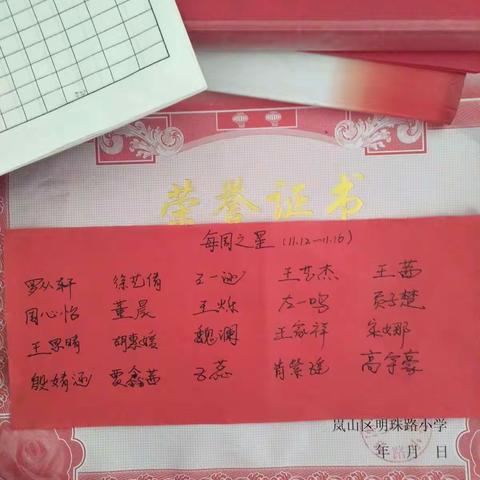 荣誉证书
每周之星(11.12—11.16)
徐艺倩 王一涵 王艺杰 王茜
周心怡 董晨 王烁 左一鸣 贡子楚
王思晴 胡惠媛 魏澜 王家祥 宋娜
殷婧涵 贾鑫茜 王蕊 肖紫瑶 高宇豪
岚山区明珠路小学
年 月 日